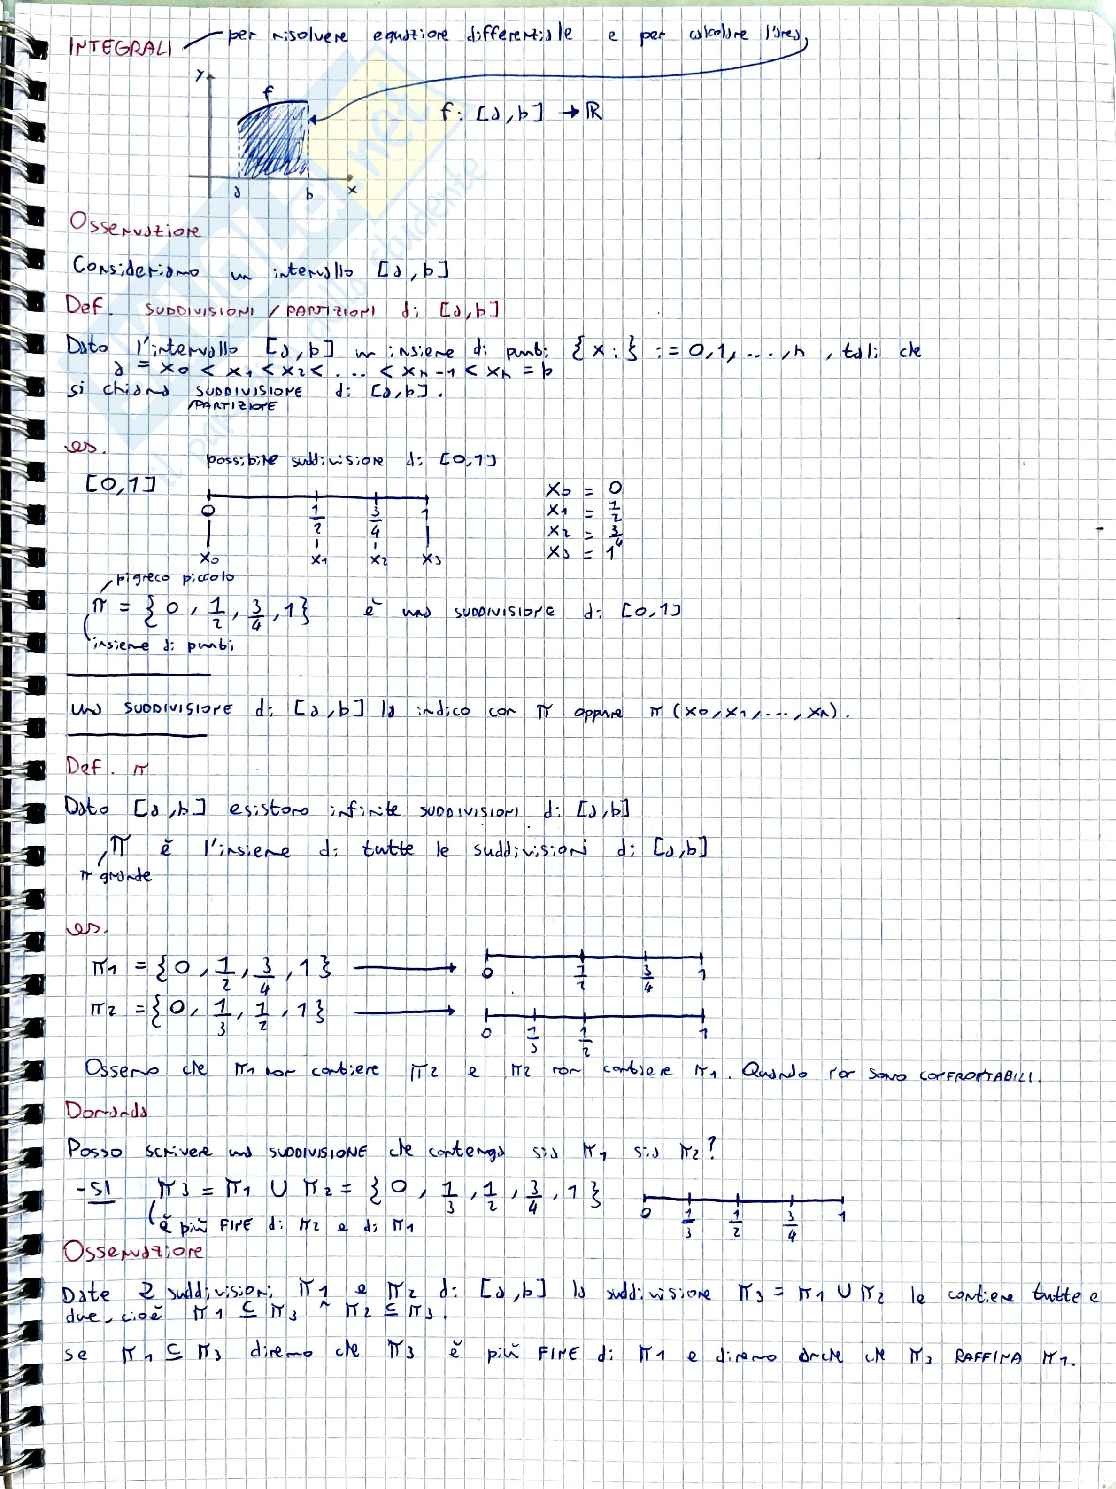 INTEGRALI per risolvere equazione differenziale e per calcolare l'area
y
f
f: [a,b] → ℝ
a b x
Osservazione
Consideriamo un intervallo [a,b]
Def. SUDDIVISIONI / PARTIZIONI di [a,b]
Dato l'intervallo [a,b] un insieme di punti {xi} i=0,1,...,n, tali che
a = x0 < x1 < x2 < ... < xn-1 < xn = b
si chiama SUDDIVISIONE di [a,b].
/PARTIZIONE
es.
possibile suddivisione di [0,1]
[0,1]
0 1/2 3/4 1
x0 x1 x2 x3
x0 = 0
x1 = 1/2
x2 = 3/4
x3 = 1
pigreco piccolo
π = {0, 1/2, 3/4, 1} è una SUDDIVISIONE di [0,1]
insieme di punti
una SUDDIVISIONE di [a,b] la indico con π oppure π(x0,x1,...,xn).
Def. π
Dato [a,b] esistono infinite SUDDIVISIONI di [a,b]
Π è l'insieme di tutte le suddivisioni di [a,b]
π grande
es.
π1 = {0, 1/2, 3/4, 1} → 0 1/2 3/4 1
π2 = {0, 1/3, 1/2, 1} → 0 1/3 1/2 1
Osservo che π1 non contiene π2 e π2 non contiene π1. Quando non sono CONFRONTABILI.
Domanda
Posso scrivere una SUDDIVISIONE che contenga sia π1 sia π2?
-SI π3 = π1 ∪ π2 = {0, 1/3, 1/2, 3/4, 1} 0 1/3 1/2 3/4 1
è più FINE di π2 e di π1
Osservazione
Date 2 suddivisioni π1 e π2 di [a,b] la suddivisione π3 = π1 ∪ π2 le contiene tutte e
due, cioè π1 ⊆ π3 ^ π2 ⊆ π3.
se π1 ⊆ π3 diremo che π3 è più FINE di π1 e diremo anche che π3 RAFFINA π1.